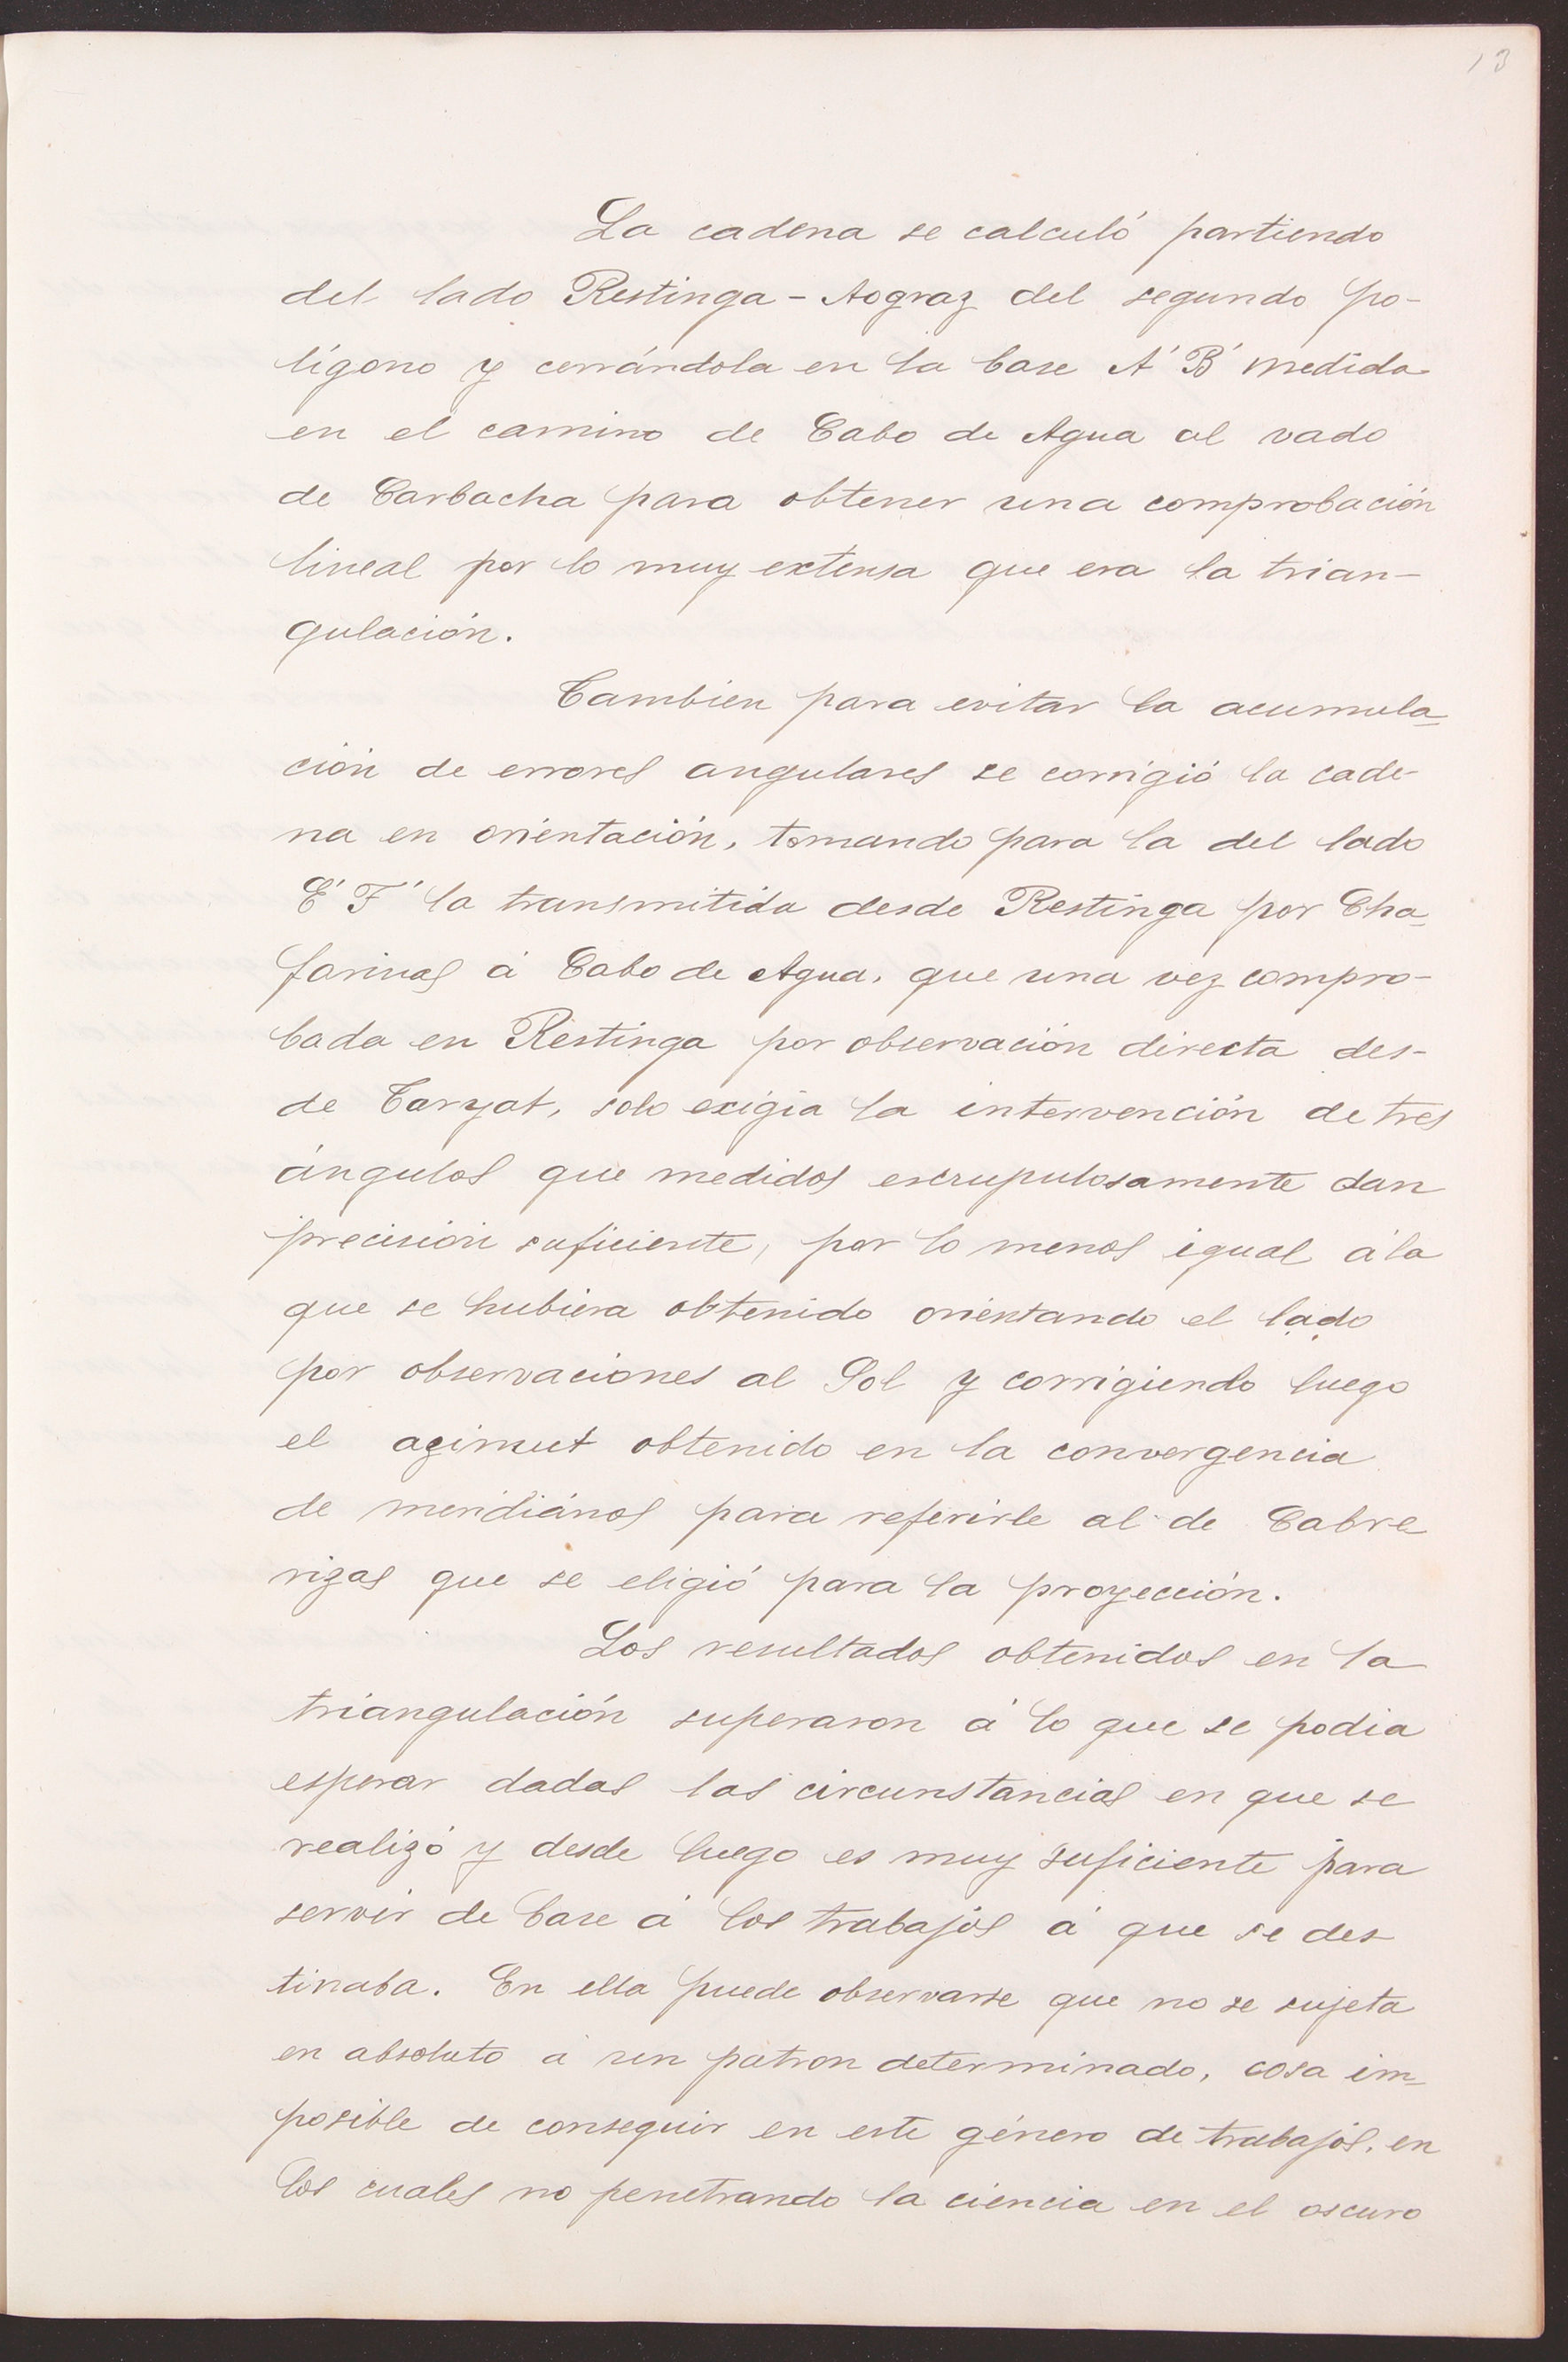 13
La cadena se calculó partiendo
del lado Restinga - Aograz del segundo po-
lígono y cerrándola en la base A' B' medida
en el camino de Cabo de Agua al vado
de Carbacha para obtener una comprobación
lineal por lo muy extensa que era la trian-
gulación.
Tambien para evitar la acumula-
ción de errores angulares se corrigió la cade-
na en orientación, tomando para la del lado
E' F' la transmitida desde Restinga por Cha-
farinas á Cabo de Agua, que una vez compro-
bada en Restinga por observación directa des-
de Taryat, solo exigia la intervención de tres
ángulos que medidos escrupulosamente dan
precisión suficiente, por lo menos igual á la
que se hubiera obtenido orientando el lado
por observaciones al Sol y corrigiendo luego
el azimut obtenido en la convergencia
de meridiános para referirle al de Cabre
rizas que se eligió para la proyección.
Los resultados obtenidos en la
triangulación superaron á lo que se podia
esperar dadas las circunstancias en que se
realizó y desde luego es muy suficiente para
servir de base á los trabajos á que se des-
tinaba. En ella puede observarse que no se sujeta
en absoluto á un patron determinado, cosa im-
posible de conseguir en este género de trabajos, en
los cuales no penetrando la ciencia en el oscuro